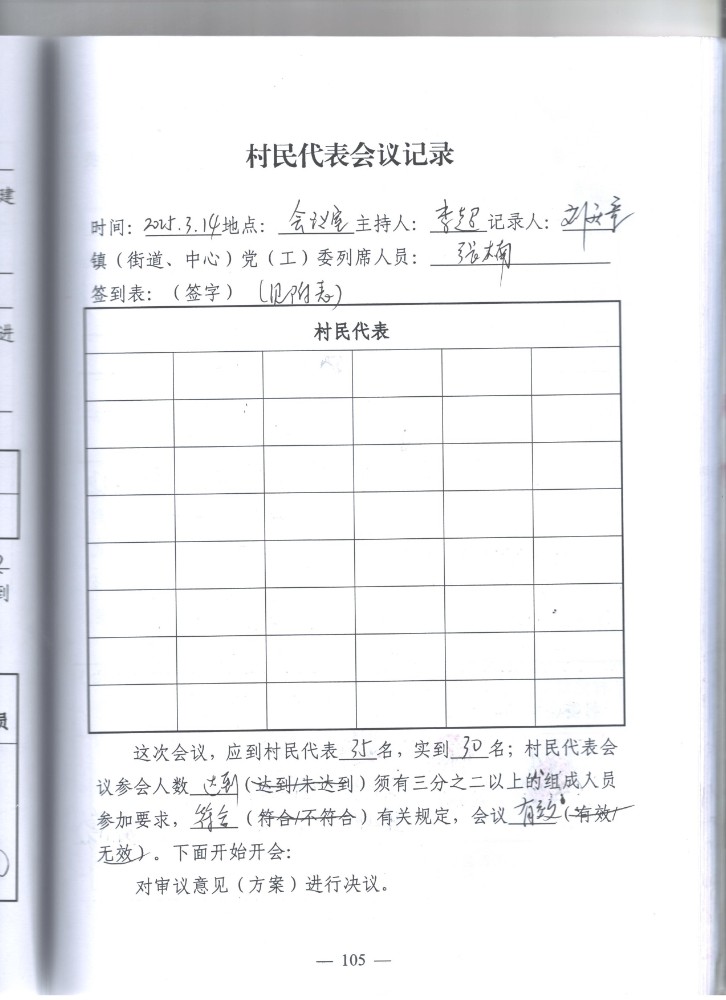 村民代表会议记录
时间：2025.3.14地点：会议室主持人：李超记录人：
镇（街道、中心）党（工）委列席人员：张楠
签到表：（签字）（见附表）
村民代表
这次会议，应到村民代表35名，实到30名；村民代表会
议参会人数达到（达到/未达到）须有三分之二以上的组成人员
参加要求，符合（符合/不符合）有关规定，会议有效（有效/
无效）。下面开始开会：
对审议意见（方案）进行决议。
— 105 —
建
进
到